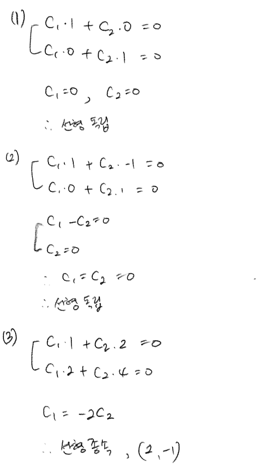 (1) C₁·1 + C₂·0 = 0
C₁·0 + C₂·1 = 0
C₁=0 , C₂=0
∴ 선형 독립
(2) C₁·1 + C₂·-1 = 0
C₁·0 + C₂·1 = 0
C₁ -C₂=0
C₂=0
∴ C₁=C₂=0
∴ 선형 독립
(3) C₁·1 + C₂·2 = 0
C₁·2 + C₂·4 = 0
C₁ = -2C₂
∴ 선형 종속 , (2, -1)